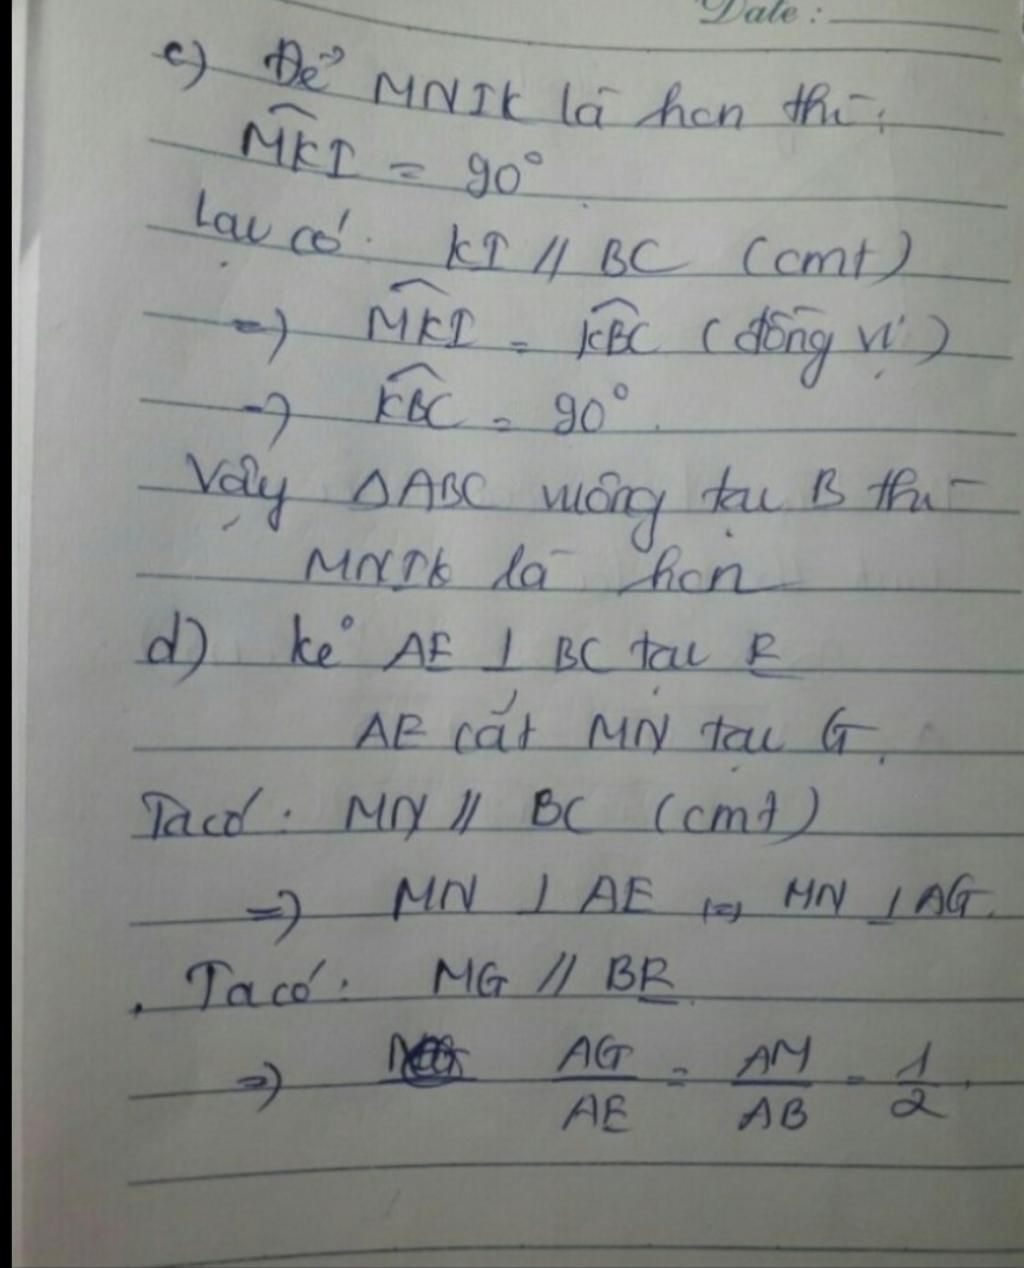 Date :
c) Để MNIK là hcn thì:
MKI = 90°
Lại có: KI // BC (cmt)
=> MKI = KBC (đồng vị)
=> KBC = 90°.
Vậy ΔABC vuông tại B thì
MNIK là hcn
d) kẻ AE ⊥ BC tại E
AE cắt MN tại G.
Ta có: MN // BC (cmt)
=> MN ⊥ AE => MN ⊥ AG.
. Ta có: MG // BE
=> AG/AE = AM/AB = 1/2.